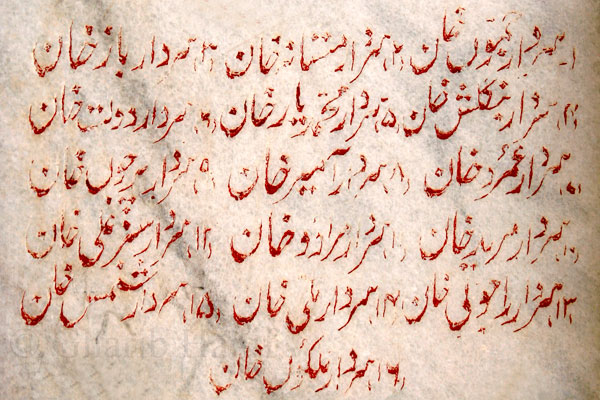 ۱۔ سردار خان (۲) سردار مستانہ خان (۳) سردار باز خان
(۴) سردار خان (۵) سردار محمد یار خان (۶) سردار دولت خان
(۷) سردار خان (۸) سردار آمیر خان (۹) سردار خان
(۱۰) سردار مرید خان (۱۱) سردار مرادو خان (۱۲) سردار علی خان
(۱۳) سردار راجولی خان (۱۴) سردار بلی خان (۱۵) سردار شمس خان
(۱۶) سردار ملکوں خان
© Ghalib